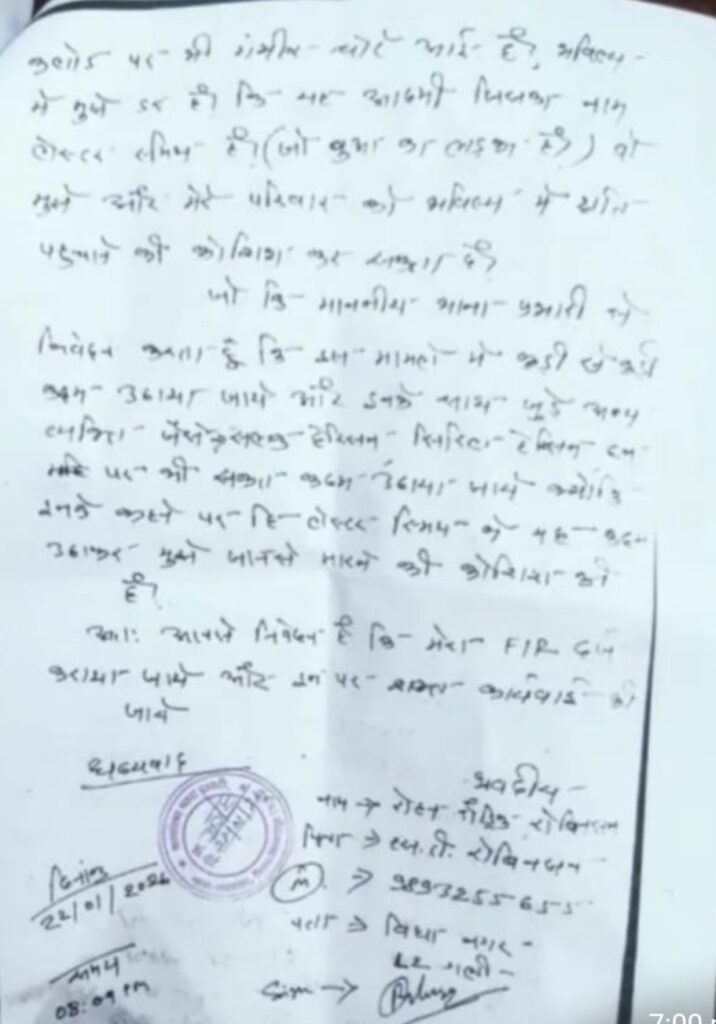 पर भी गंभीर चोटे आई है, भविष्य
मे मुझे डर है कि यह आदमी जिसका नाम
है (जो बुआ का लड़का है) वो
मुझे और मेरे परिवार को भविष्य मे क्षति
पहुचाने की कोशिश कर सकता है
जो कि माननीय थाना प्रभारी से
निवेदन करता हूँ कि इस मामले मे कड़ी से कड़ी
कदम उठाया जाये और इनके साथ जुड़े अन्य
व्यक्ति
पर भी सख्त कदम उठाया जाये क्योकि
इनके कहने पर हि लेस्टर स्मिथ ने यह कदम
उठाकर मुझे जानसे मारने की कोशिश की
है
अतः आपसे निवेदन है कि मेरा FIR दर्ज
कराया जाये और इन पर सख्त कार्यवाई की
जाये
धन्यवाद
भवदीय -
नाम → रोबिनसन
पिता → एस.टी. रोबिनसन
दिनांक
22/01/2026
M → 9893255655
पता → विद्या नगर -
गली -
समय
08:09 PM
Sign →
7:00